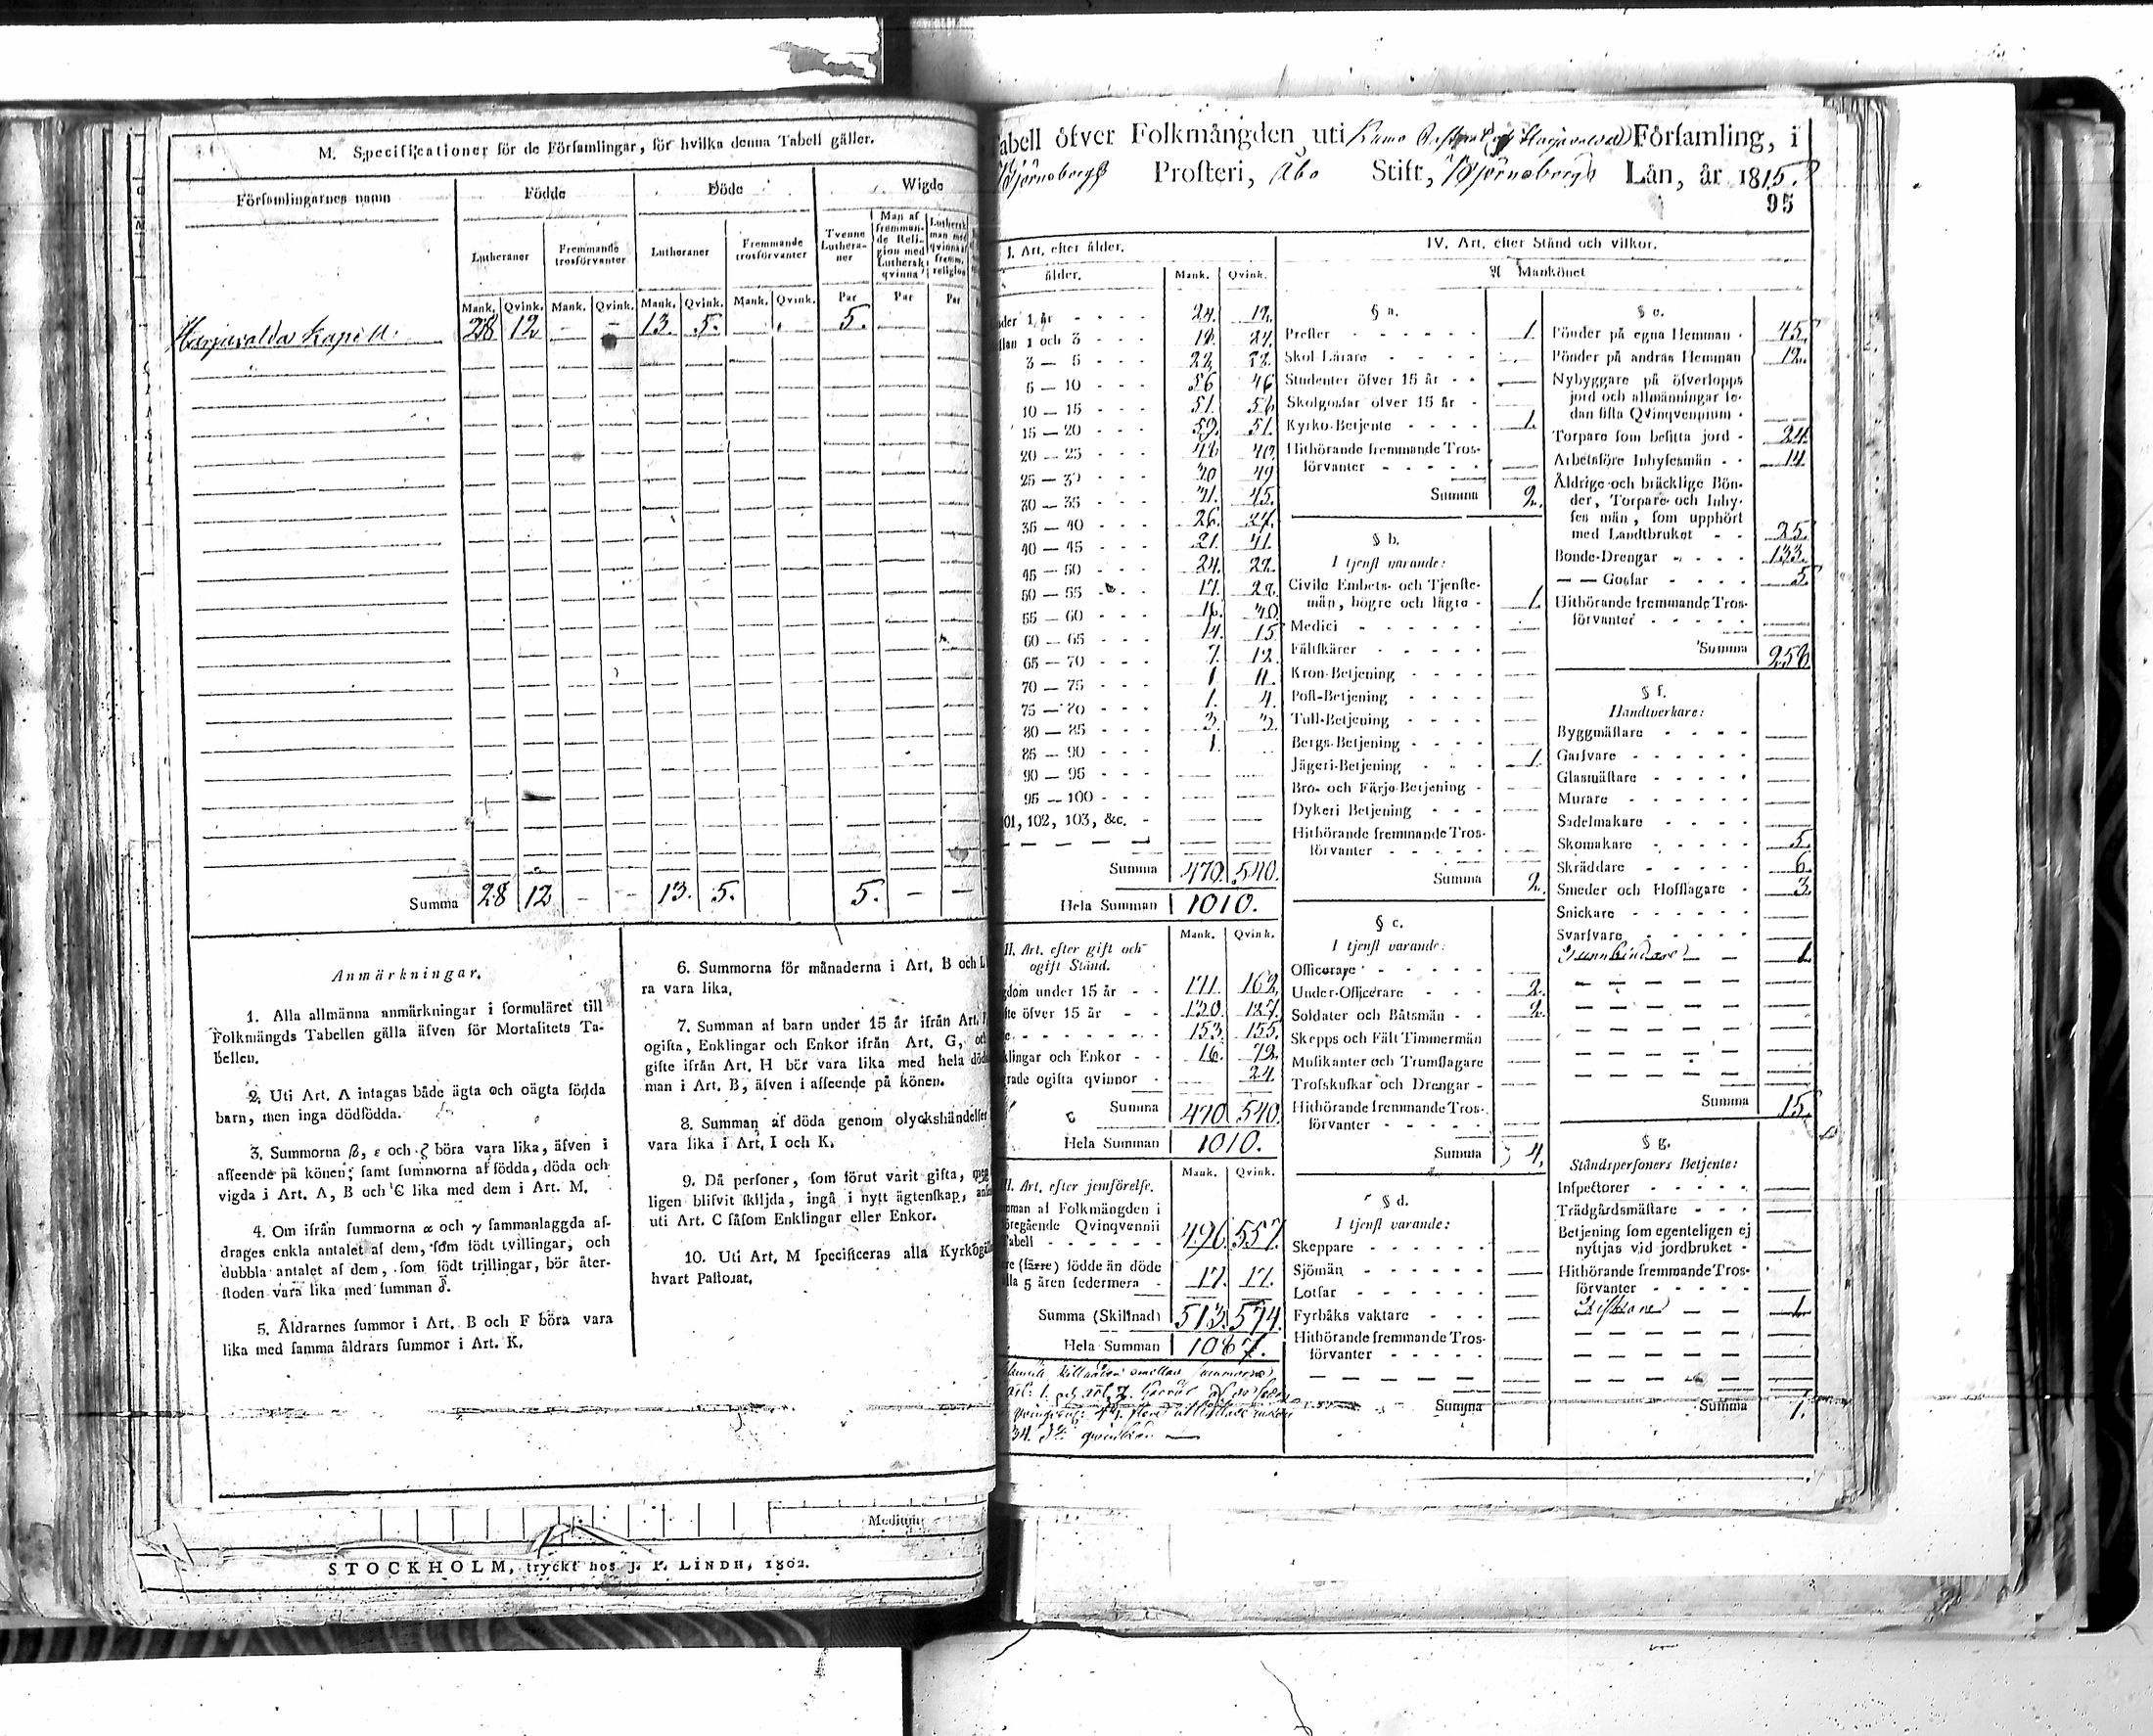 M. Specificationer för de Församlingar, för hvilka denna Tabell gäller.
Församlingarnes namn
Födde
Döde
Wigde
Lutheraner
Fremmande trosförvanter
Lutheraner
Fremmande trosförvanter
Tvenne Luthera-ner
Man af fremman-de Reli-gion med Luthersk qvinna
Luthersk man med qvinna af fremm. religion
Mank. Qvink. Mank. Qvink. Mank. Qvink. Mank. Qvink. Par Par Par
Harjavalda Kapell 28 12 — — 13. 5. 5.
Summa 28 12 — — 13. 5. 5. — —
Anmärkningar.
1. Alla allmänna anmärkningar i formuläret till
Folkmängds Tabellen gälla äfven för Mortalitets Ta-
bellen.
2. Uti Art. A intagas både ägta och oägta födda
barn, men inga dödfödda.
3. Summorna ß, ε och ζ böra vara lika, äfven i
afseende på könen; samt summorna af födda, döda och
vigda i Art. A, B och C lika med dem i Art. M.
4. Om ifrån summorna α och γ sammanlaggda af-
drages enkla antalet af dem, som födt tvillingar, och
dubbla antalet af dem, som födt trillingar, bör åter-
stoden vara lika med summan δ.
5. Åldrarnes summor i Art. B och F böra vara
lika med samma åldrars summor i Art. K.
6. Summorna för månaderna i Art. B och L
ra vara lika.
7. Summan af barn under 15 år ifrån Art.
ogifta, Enklingar och Enkor ifrån Art. G, och
gifte ifrån Art. H bör vara lika med hela död
man i Art. B, äfven i afseende på könen.
8. Summan af döda genom olyckshändelser
vara lika i Art. I och K.
9. Då personer, som förut varit gifta, men
ligen blifvit skiljda, ingå i nytt ägtenskap,
uti Art. C såsom Enklingar eller Enkor.
10. Uti Art. M specificeras alla Kyrkogäll
hvart Pastorat.
Medium
STOCKHOLM, tryckt hos J. P. LINDH, 1802.
Tabell öfver Folkmängden uti Kumo Harjavalda Församling, i
Björneborgs Prosteri, Åbo Stift, Björneborgs Län, år 1815.
95
I. Art. efter ålder.
ålder. Mank. Qvink.
nder 1 år - - - - 24. 12.
llan 1 och 3 - - - 24.
3 — 5 - - - 22.
5 — 10 - - - 56 46
10 — 15 - - - 51. 56
15 — 20 - - - 59. 51.
20 — 25 - - - 40
25 — 30 - - - 49
30 — 35 - - - 45.
35 — 40 - - - 26. 24.
40 — 45 - - - 21. 41.
45 — 50 - - - 24. 22.
50 — 55 - - - 17.
55 — 60 - - - 16.
60 — 65 - - - 14. 15
65 — 70 - - - 7. 12.
70 — 75 - - - 1 11.
75 — 80 - - - 1. 4.
80 — 85 - - - 3. 3.
85 — 90 - - - 1.
90 — 95 - - -
95 — 100 - - -
101, 102, 103, &c. -
Summa 470. 540.
Hela Summan 1010.
Mank. Qvink.
II. Art. efter gift och
ogift Stånd.
gdom under 15 år - - 171. 162.
fte öfver 15 år - - 130. 127.
153. 155.
klingar och Enkor - - 16. 72.
grade ogifta qvinnor - 24.
Summa 470 540.
Hela Summan 1010.
Mank. Qvink.
III. Art. efter jemförelse.
mman af Folkmängden i
föregående Qvinqvennii
Tabell - - - - - - 496. 557.
re (färre) födde än döde
lla 5 åren sedermera - 17. 17.
Summa (Skillnad) 513. 574.
Hela Summan 1087.
IV. Art. efter Stånd och vilkor.
A Mankönet
§ a.
Prester - - - - - 1.
Skol-Lärare - - - -
Studenter öfver 15 år - -
Skolgossar öfver 15 år -
Kyrko-Betjente - - - - 1.
Hithörande fremmande Tros-
förvanter - - - - -
Summa 2.
§ b.
I tjenst varande:
Civile Embets- och Tjenste-
män, högre och lägre - 1.
Medici - - - - - -
Fältskärer - - - - -
Kron-Betjening - - - -
Post-Betjening - - - -
Tull-Betjening - - - -
Bergs-Betjening - - - -
Jägeri-Betjening - - - 1.
Bro- och Färje-Betjening -
Dykeri Betjening - - -
Hithörande fremmande Tros-
förvanter - - - - -
Summa 2.
§ c.
I tjenst varande:
Officerare - - - - -
Under-Officerare - - - 2.
Soldater och Båtsmän - - 2.
Skepps och Fält Timmermän
Musikanter och Trumslagare
Trosskuskar och Drengar -
Hithörande fremmande Tros-
förvanter - - - - -
Summa 4.
§ d.
I tjenst varande:
Skeppare - - - - - -
Sjömän - - - - - -
Lotsar - - - - - -
Fyrbåks vaktare - - -
Hithörande fremmande Tros-
förvanter - - - - -
Summa
§ e.
Bönder på egna Hemman - 45.
Bönder på andras Hemman 12.
Nybyggare på öfverlopps
jord och allmänningar se-
dan sista Qvinqvennium -
Torpare som besitta jord - 24.
Arbetsföre Inhysesmän - - 14.
Äldrige och bräcklige Bön-
der, Torpare och Inhy-
ses män, som upphört
med Landtbruket - - 25.
Bonde-Drengar - - - - 133.
— — Gossar - - - - 3.
Hithörande fremmande Tros-
förvanter - - - - -
Summa 256.
§ f.
Handtverkare:
Byggmästare - - - -
Garfvare - - - - - -
Glasmästare - - - - -
Murare - - - - - -
Sadelmakare - - - -
Skomakare - - - - - 5.
Skräddare - - - - - 6.
Smeder och Hofslagare - 3.
Snickare - - - - - -
Svarfvare - - - - - -
Tunnbindare — — 1.
Summa 15.
§ g.
Ståndspersoners Betjente:
Inspectorer - - - - -
Trädgårdsmästare - - -
Betjening som egenteligen ej
nyttjas vid jordbruket -
Hithörande fremmande Tros-
förvanter - - - - -
1.
Summa 1.